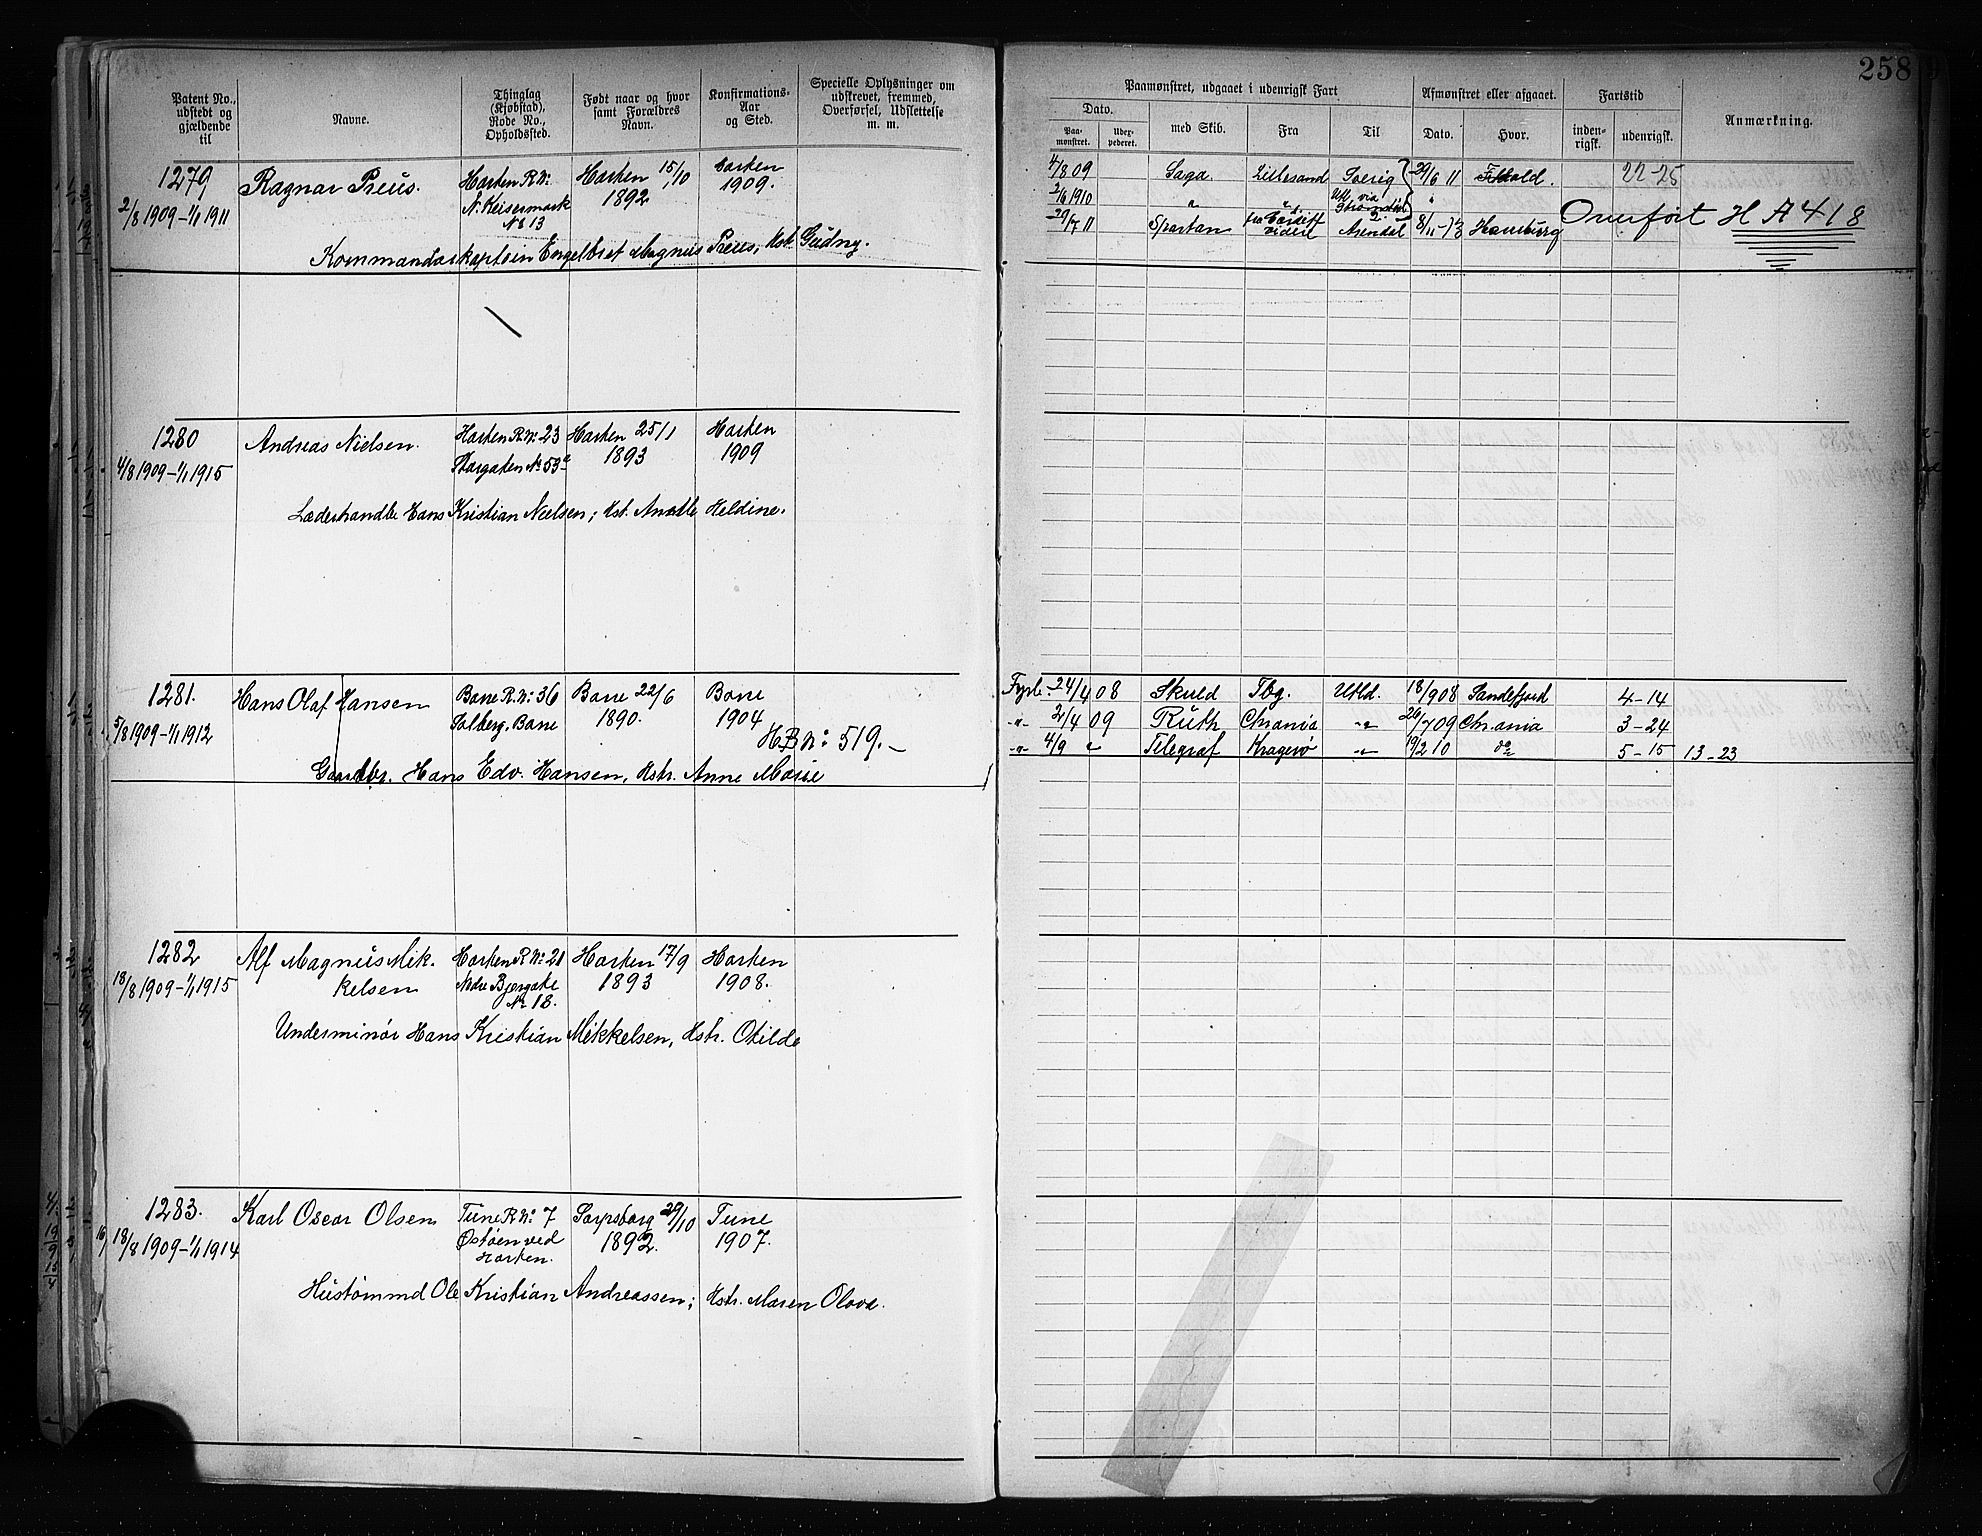 258
Patent No., udstedt og gjældende til
Navne.
Thinglag (Kjøbstad), Rode No., Opholdssted.
Født naar og hvor samt Forældres Navn.
Konfirmations-Aar og Sted.
Specielle Oplysninger om udskrevet, fremmed, Overførsel, Udslettelse m. m.
Paamønstret, udgaaet i udenrigsk Fart
Afmønstret eller afgaaet.
Fartstid
Anmærkning.
Dato.
Paa-mønstret.
med Skib.
Fra
Til
Dato.
Hvor.
inden-rigsk.
udenrigsk.
1279
2/8 1909-1/1 1911
Ragnar Preus.
Horten R.No:
N. Keisermark
No 13
Horten 15/10
1892
Horten
1909.
Kommandørkaptein Engelbret Magnus Preus, Hst. Gudny.
4/8 09 Saga Lillesand 29/6 11 22-25
2/6 1910 " Utl. via
29/7 11 Spartan Arendal 8/11-13 Hamburg
Overført H A 418
1280
4/8 1909-1/1 1915
Andreas Nielsen.
Horten R.No: 23
Storgaten No 53a
Horten 25/1
1893
Horten
1909
Læderhandler Hans Kristian Nielsen; Hst. Heldine.
1281.
5/8 1909-1/1 1912
Hans Olaf Hansen
Borre R.No: 36
Solberg, Borre
Borre 22/6
1890.
Borre
1904
H.B No: 519.-
Gaardbr. Hans Edv. Hansen, Hstr. Anne Marie
24/4 08 Skuld Tbg. Utld. 18/9 08 Sandefjord 4-14
-"- 2/4 09 Ruth Chrania -"- 26/7 09 Chrania 3-24
-"- 4/9 " Telegraf Kragerø -"- 19/2 10 do 5-15 13-23
1282
18/8 1909-1/1 1915
Alf Magnus Mik-
kelsen
Horten R.No: 21
Nedre Bjergate
No 18.
Horten 17/9
1893
Horten
1908.
Underminør Hans Kristian Mikkelsen, Hstr. Otilde
1283.
18/8 1909-1/1 1914
Karl Oscar Olsen
Tune R.No: 7
Østøen ved
Horten.
Sarpsborg 29/10
1892.
Tune
1907.
Hustømmd Ole Kristian Andreassen; Hstr. Maren Olava.